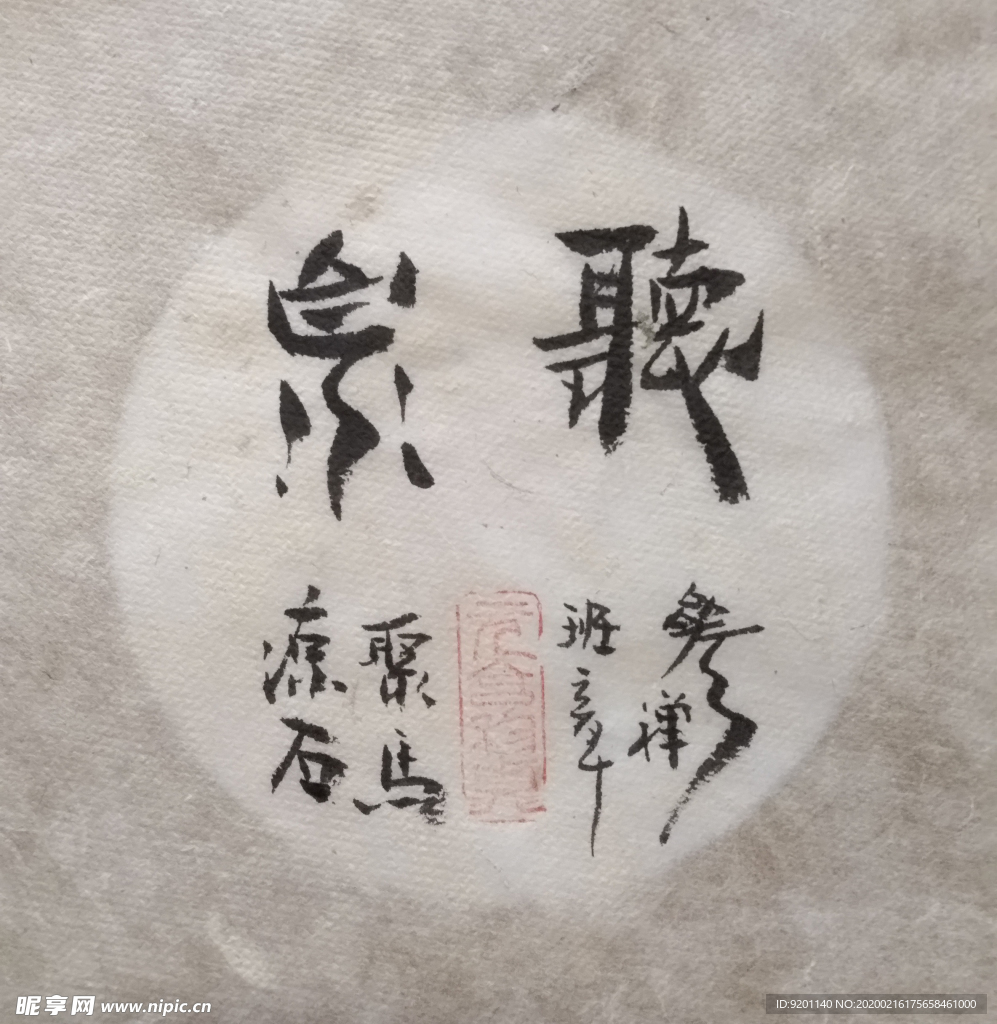 聽
泉
參禪
班章
聚馬
源石
昵享网 www.nipic.cn
ID:9201140 NO:20200216175658461000